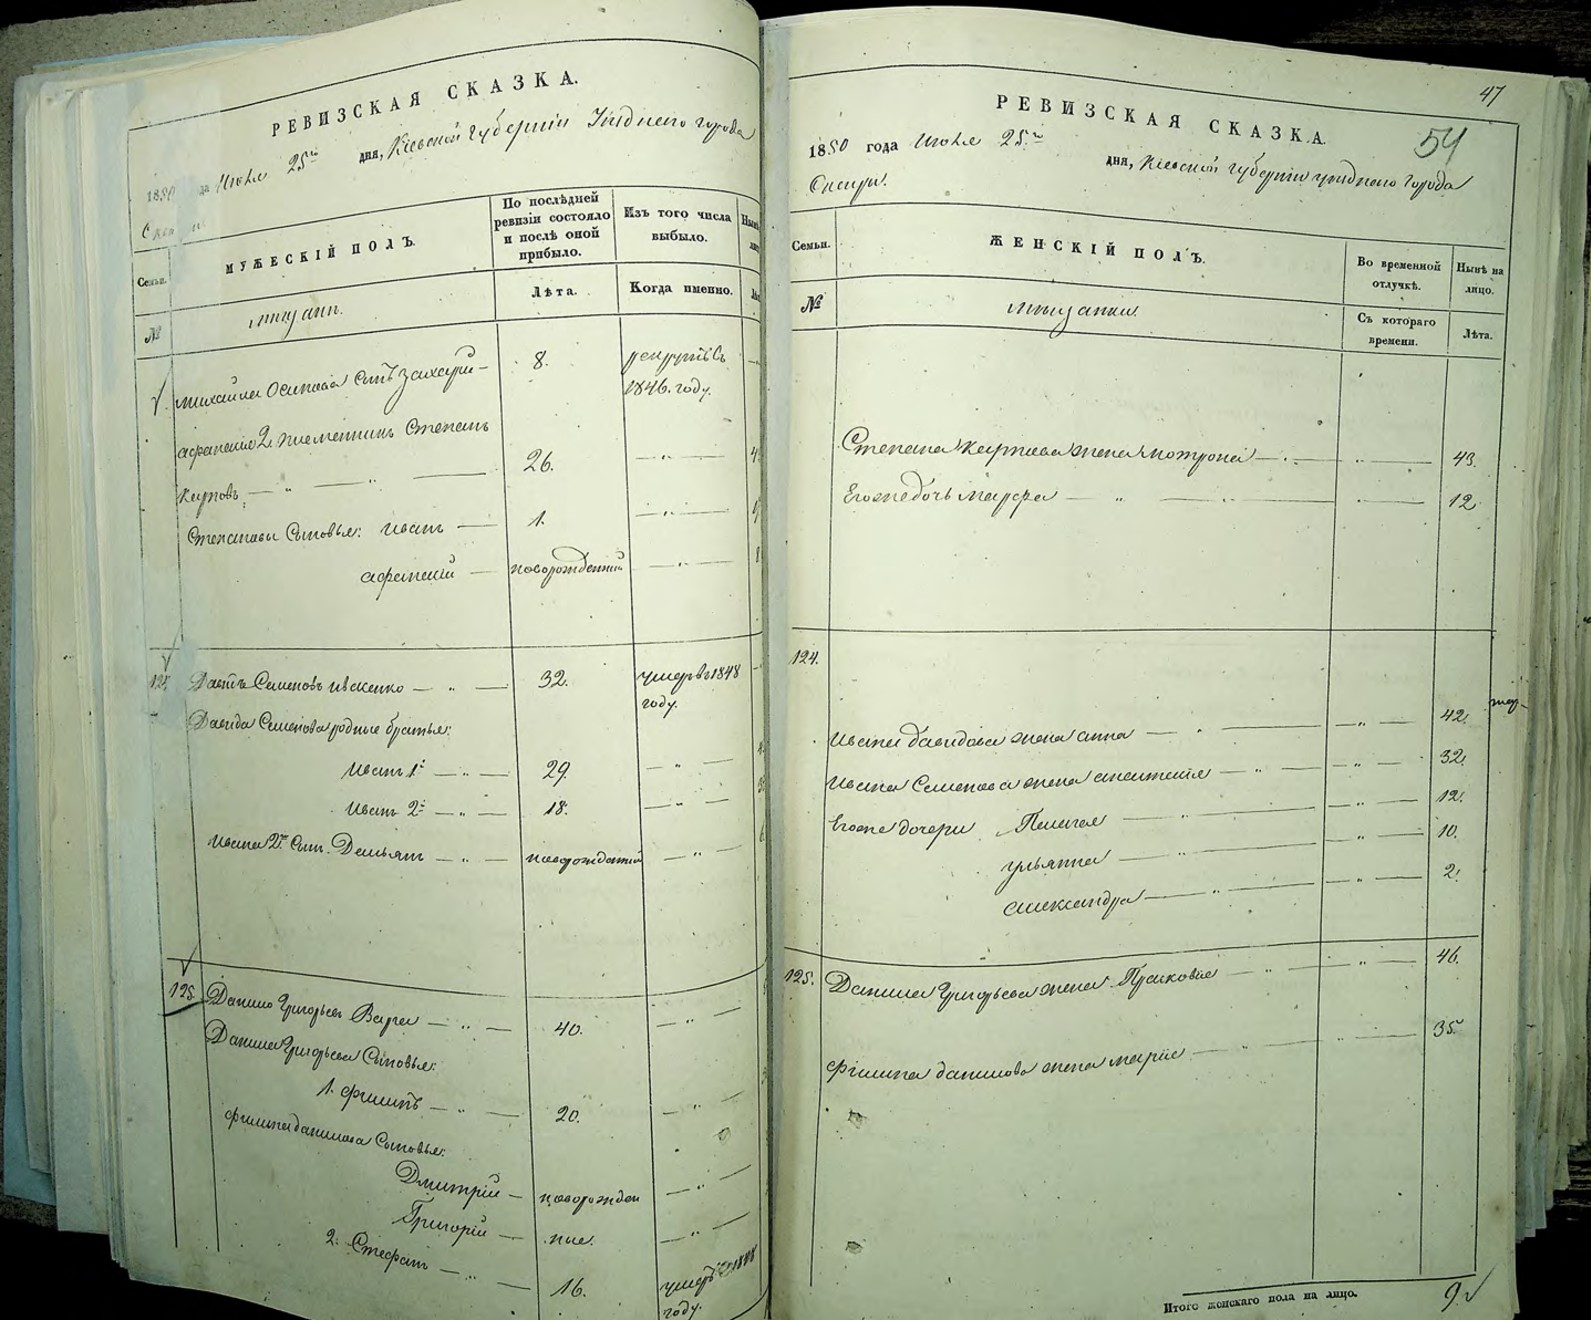 РЕВИЗСКАЯ СКАЗКА.
1850 да Июля 25го дня, Кіевской губерніи Уѣзднаго города
МУЖЕСКІЙ ПОЛЪ.
По послѣдней ревизіи состояло и послѣ оной прибыло.
Изъ того числа выбыло.
Семьи.
Лѣта.
Когда именно.
№
мещанъ.
Михайла Осипова сынъ Захарій 8. рекрутъ съ
1846. году.
Афанасія 2 племенникъ Степанъ
Карповъ 26.
Степановы Сыновья: Иванъ 1.
Афанасій новорожденный
Семеновъ 32. умеръ в 1848
году.
Давида Семенова родные братья:
Иванъ 1й 29
Иванъ 2й 18.
Ивана 2го Сынъ Демьянъ новорожденный
125. Данило Григорьевъ Варга 40.
Данила Григорьева Сыновья:
1. Филипъ 20.
Филипа Данилова Сыновья:
Дмитрій новорожден
Григорій ные.
2. Стефанъ 16. умеръ 1848
году.
47
РЕВИЗСКАЯ СКАЗКА.
54
1850 года Июля 25го дня, Кіевской губерніи уѣзднаго города
Сквиры.
Семьи.
ЖЕНСКІЙ ПОЛЪ.
Во временной отлучкѣ.
Нынѣ на лицо.
№
мещанки.
Съ котораго времени.
Лѣта.
Степана Карпова жена Мотрона 43.
Его же дочь Марфа 12
124.
Ивана Давидова жена Анна 42.
Ивана Семенова жена Анастасія 32.
Его же дочери Пелагея 12.
Ульянна 10.
Александра 2.
125. Данила Григорьева жена Прасковіе 46.
Филипа Данилова жена Маріе 35.
Итого женскаго пола на лицо. 9